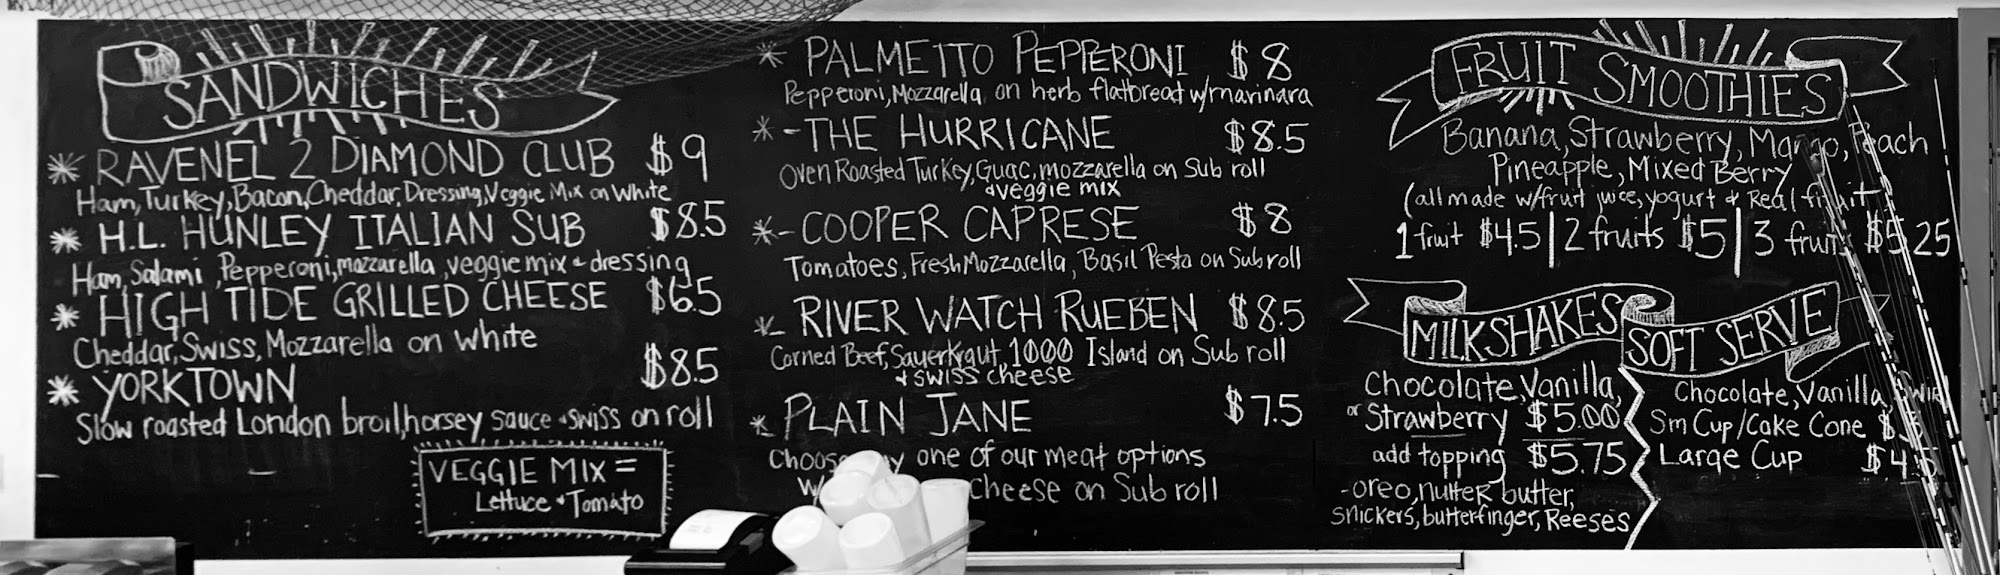 SANDWICHES
* RAVENEL 2 DIAMOND CLUB $9
Ham, Turkey, Bacon, Cheddar, Dressing, Veggie Mix on White
* H.L. HUNLEY ITALIAN SUB $8.5
Ham, Salami, Pepperoni, mozzarella, veggie mix + dressing
* HIGH TIDE GRILLED CHEESE $6.5
Cheddar, Swiss, Mozzarella on White
* YORKTOWN $8.5
Slow roasted London broil, horsey sauce + swiss on roll
VEGGIE MIX =
Lettuce + Tomato
* PALMETTO PEPPERONI $8
Pepperoni, Mozzarella on herb flatbread w/marinara
* - THE HURRICANE $8.5
Oven Roasted Turkey, Guac, mozzarella on Sub roll
+ veggie mix
* - COOPER CAPRESE $8
Tomatoes, Fresh Mozzarella, Basil Pesto on Sub roll
* RIVER WATCH RUEBEN $8.5
Corned Beef, Sauerkraut, 1000 Island on Sub roll
+ swiss cheese
* PLAIN JANE $7.5
one of our meat options
cheese on Sub roll
FRUIT SMOOTHIES
Banana, Strawberry, Mango, Peach
Pineapple, Mixed Berry
(all made w/fruit juice, yogurt + Real fruit
1 fruit $4.5 | 2 fruits $5 | 3 fruits $5.25
MILKSHAKES
Chocolate, Vanilla,
or Strawberry $5.00
add topping $5.75
- oreo, nutter butter,
snickers, butterfinger, Reeses
SOFT SERVE
Chocolate, Vanilla, Swirl
Sm Cup/Cake Cone
Large Cup $4.5